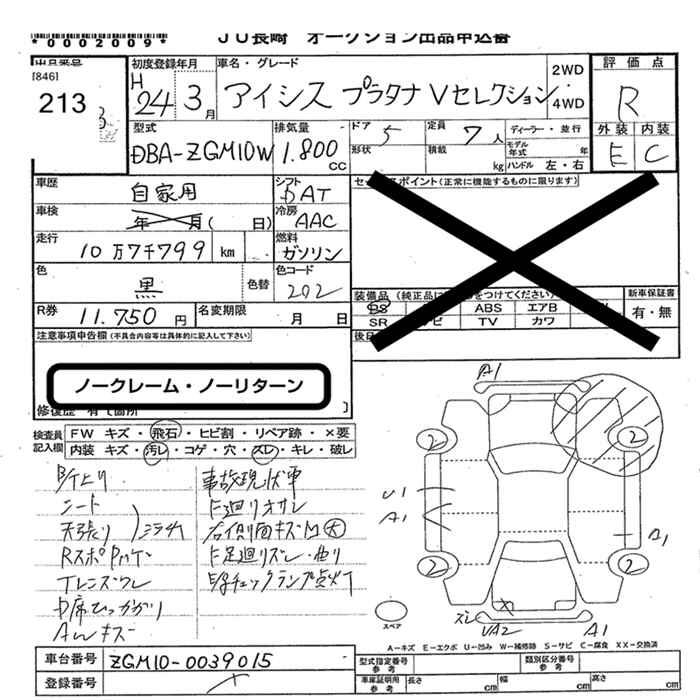 *0002009*
JU長崎 オークション出品申込書
[846]
213
初度登録年月
H 24年 3月
車名・グレード
アイシス プラタナ Vセレクション
2WD
4WD
評価点
R
外装 内装
E C
型式
DBA-ZGM10W
排気量
1.800 CC
ドア 5
形状
定員 7人
積載 kg
ディーラー・並行
モデル年式 年
ハンドル 左・右
車歴
自家用
シフト
DAT
車検
年 月( 日)
冷房
AAC
走行
10万7千799 km
燃料
ガソリン
色
黒
色替
色コード
202
R券
11.750 円
名変期限
月 日
セールスポイント(正常に機能するものに限ります)
装備品
ABS エアB
SR TV カワ
新車保証書
有・無
注意事項申告欄(不具合内容等は具体的に記入して下さい)
ノークレーム・ノーリターン
修復歴 有
検査員記入欄
FW キズ・飛石・ヒビ割・リペア跡・×要
内装 キズ・汚レ・コゲ・穴・スレ・キレ・破レ
シート
天張り
Awキズ
事故現状車
下廻りオサレ
右側面キズM大
下足廻りズレ・曲り
チェックランプ点灯
A1
2
2
U1
A1
B1
2
2
スペア
ズレ
UA2
A1
A-キズ E-エクボ U-凹み W-補修跡 S-サビ C-腐食 XX-交換済
車台番号
ZGM10-0039015
登録番号
型式指定番号 参考
類別区分番号 参考
車庫証明用 参考
長さ cm
幅 cm
高さ cm